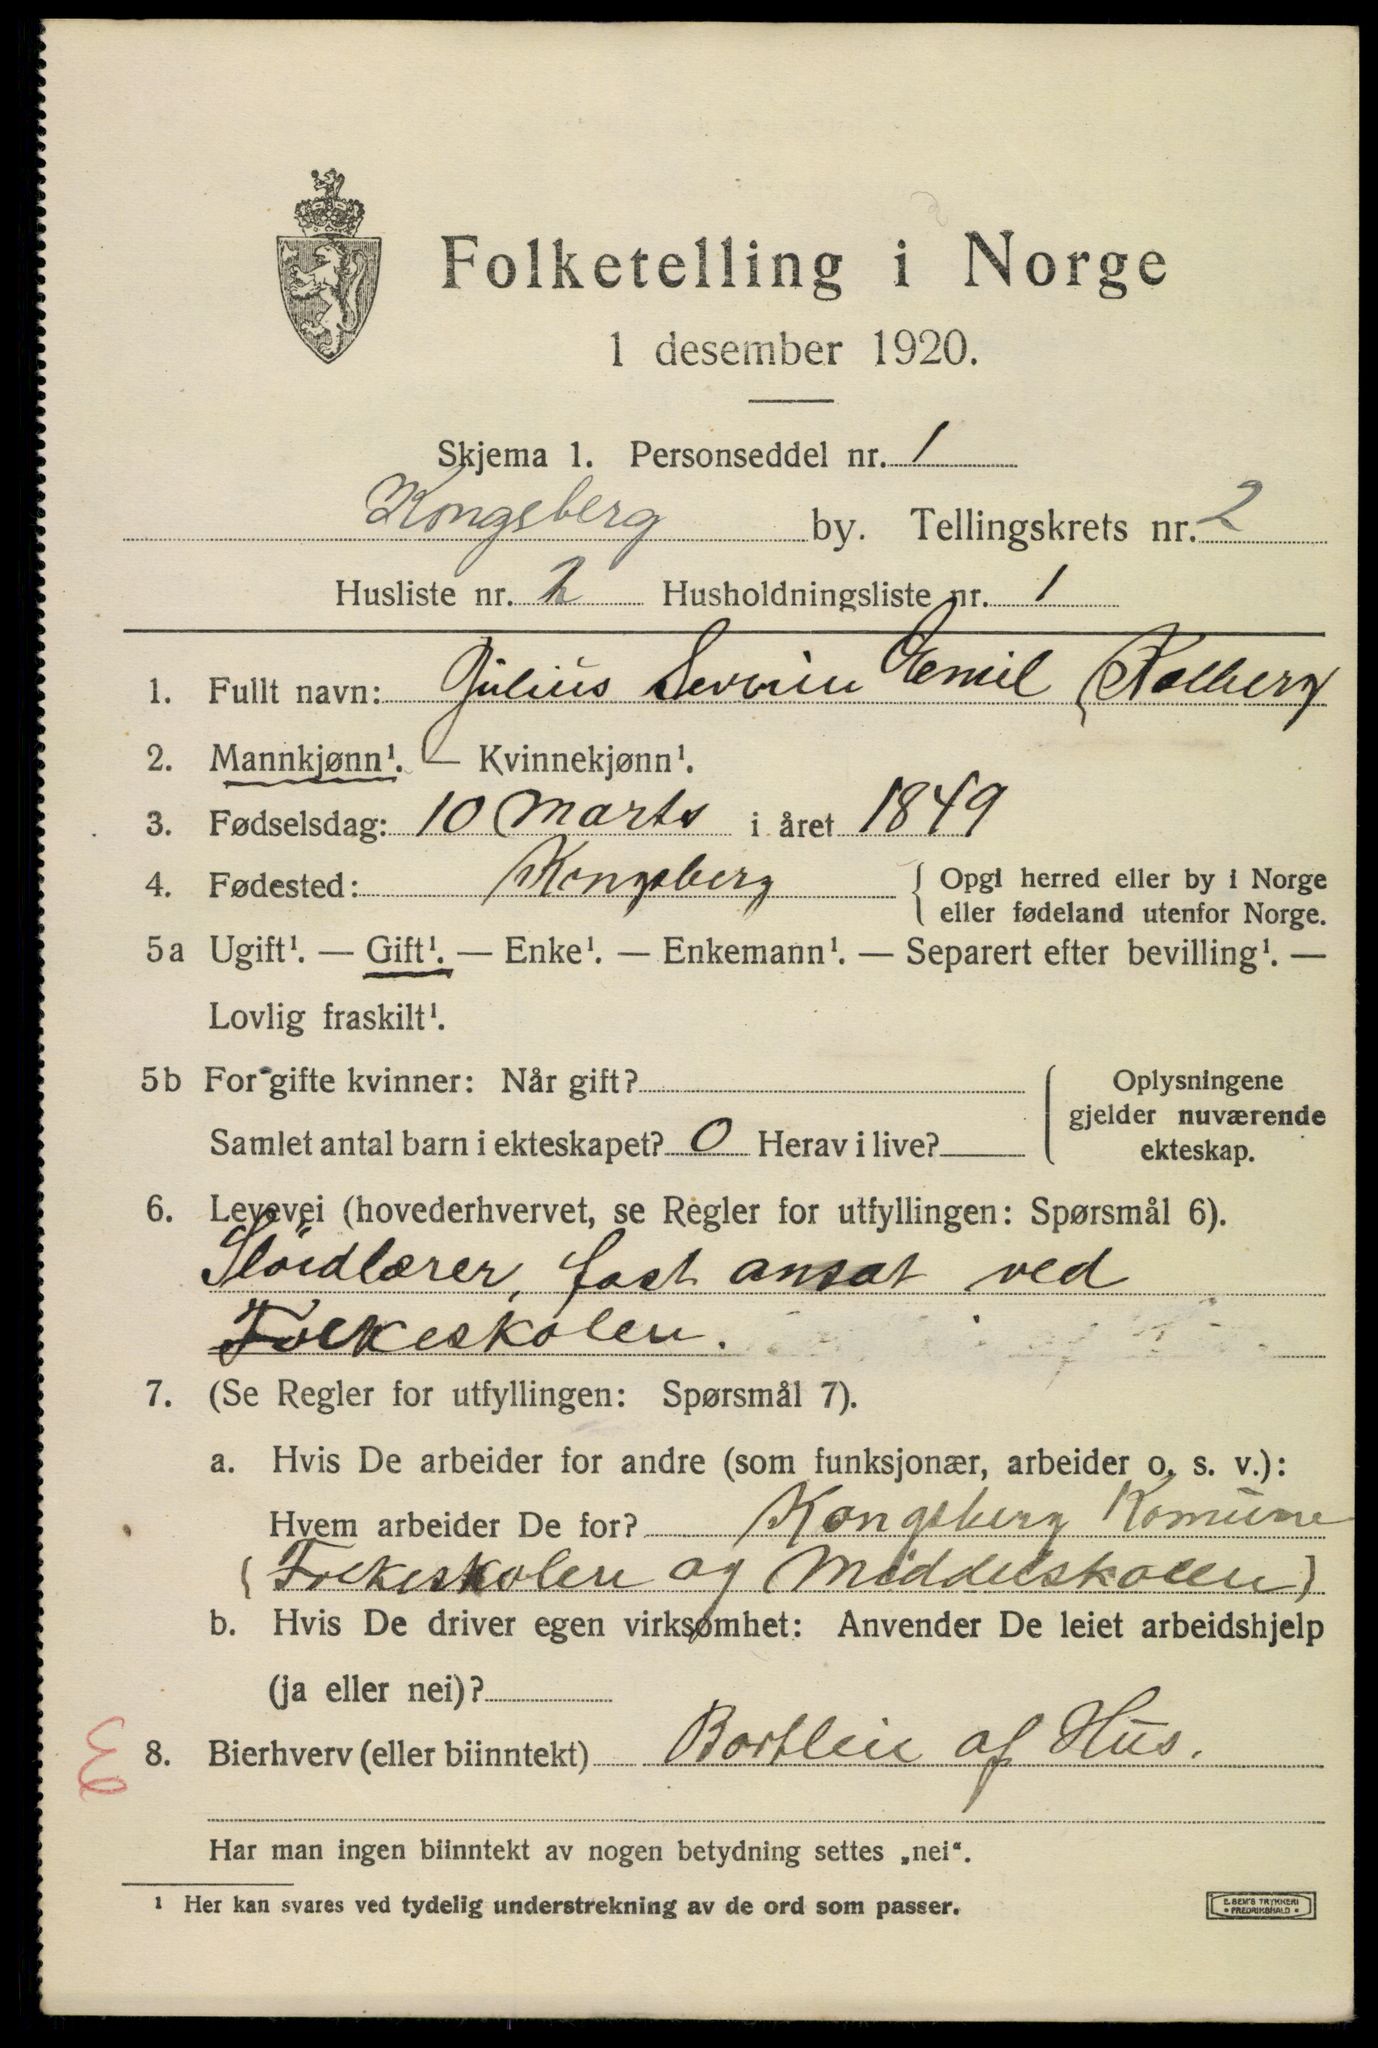 Folketelling i Norge
1 desember 1920.
Skjema 1. Personseddel nr. 1
Kongsberg by. Tellingskrets nr. 2
Husliste nr. 2 Husholdningsliste nr. 1
1. Fullt navn: Julius Severin Emil
2. Mannkjønn¹. — Kvinnekjønn¹.
3. Fødselsdag: 10 Marts i året 1849
4. Fødested: Kongsberg { Opgi herred eller by i Norge
eller fødeland utenfor Norge.
5a Ugift¹. — Gift¹. — Enke¹. — Enkemann¹. — Separert efter bevilling¹. —
Lovlig fraskilt¹.
5b For gifte kvinner: Når gift? { Oplysningene
gjelder nuværende
Samlet antal barn i ekteskapet? 0 Herav i live? ekteskap.
6. Levevei (hovederhvervet, se Regler for utfyllingen: Spørsmål 6).
Sløidlærer, fast ansat ved
Folkeskolen.
7. (Se Regler for utfyllingen: Spørsmål 7).
a. Hvis De arbeider for andre (som funksjonær, arbeider o. s. v.):
Hvem arbeider De for? Kongsberg Komune
(Folkeskolen og Middelskolen)
b. Hvis De driver egen virksomhet: Anvender De leiet arbeidshjelp
(ja eller nei)?
8. Bierhverv (eller biinntekt) Bortleie af Hus.
Har man ingen biinntekt av nogen betydning settes „nei“.
¹ Her kan svares ved tydelig understrekning av de ord som passer.
E. SEM'S TRYKKERI
• FREDRIKSHALD •